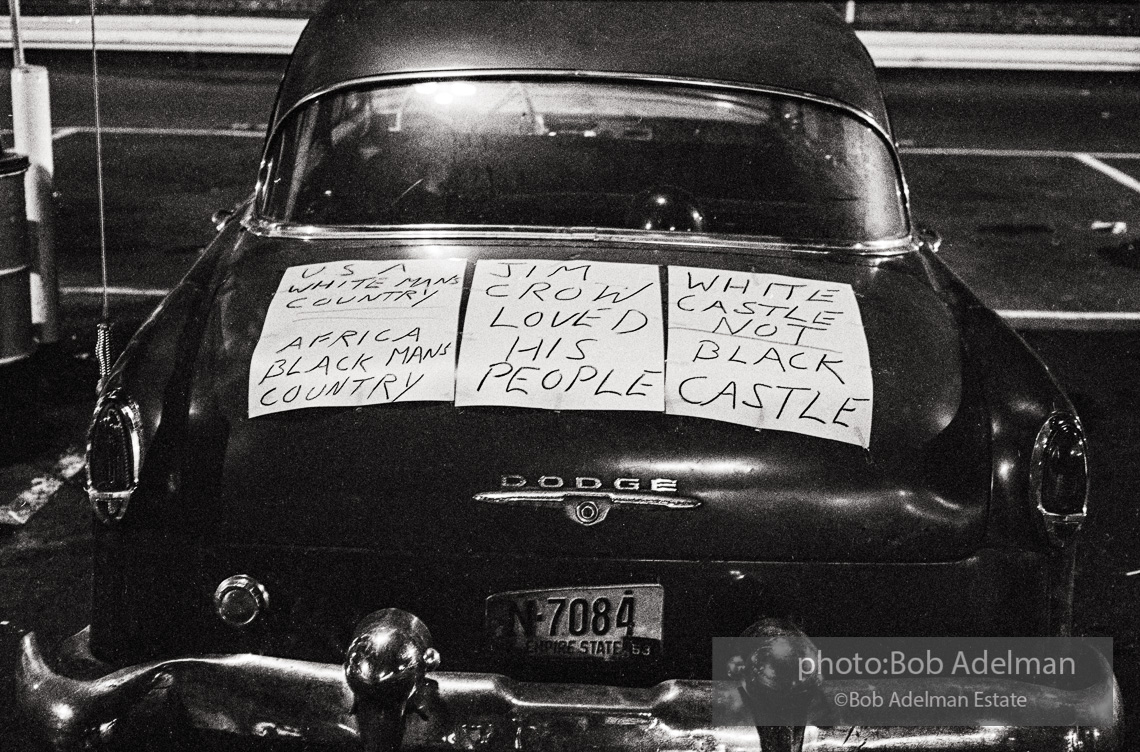 USA
WHITE MANS
COUNTRY
AFRICA
BLACK MANS
COUNTRY
JIM
CROW
LOVED
HIS
PEOPLE
WHITE
CASTLE
NOT
BLACK
CASTLE
DODGE
N-7084
EMPIRE STATE 63
photo:Bob Adelman
©Bob Adelman Estate